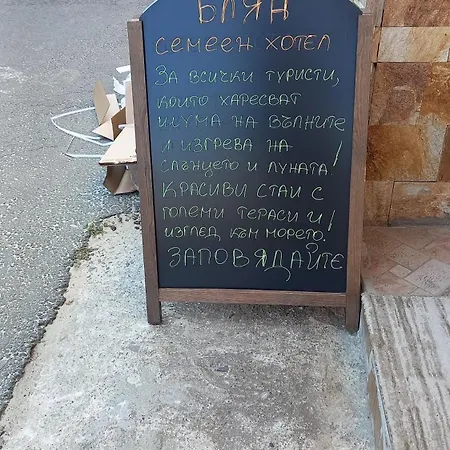 БЛЯН
СЕМЕЕН ХОТЕЛ
ЗА ВСИЧКИ ТУРИСТИ,
КОИТО ХАРЕСВАТ
ШУМА НА ВЪЛНИТЕ
И ИЗГРЕВА НА
СЛЪНЦЕТО И ЛУНАТА!
КРАСИВИ СТАИ С
ГОЛЕМИ ТЕРАСИ И
ИЗГЛЕД КЪМ МОРЕТО!
ЗАПОВЯДАЙТЕ